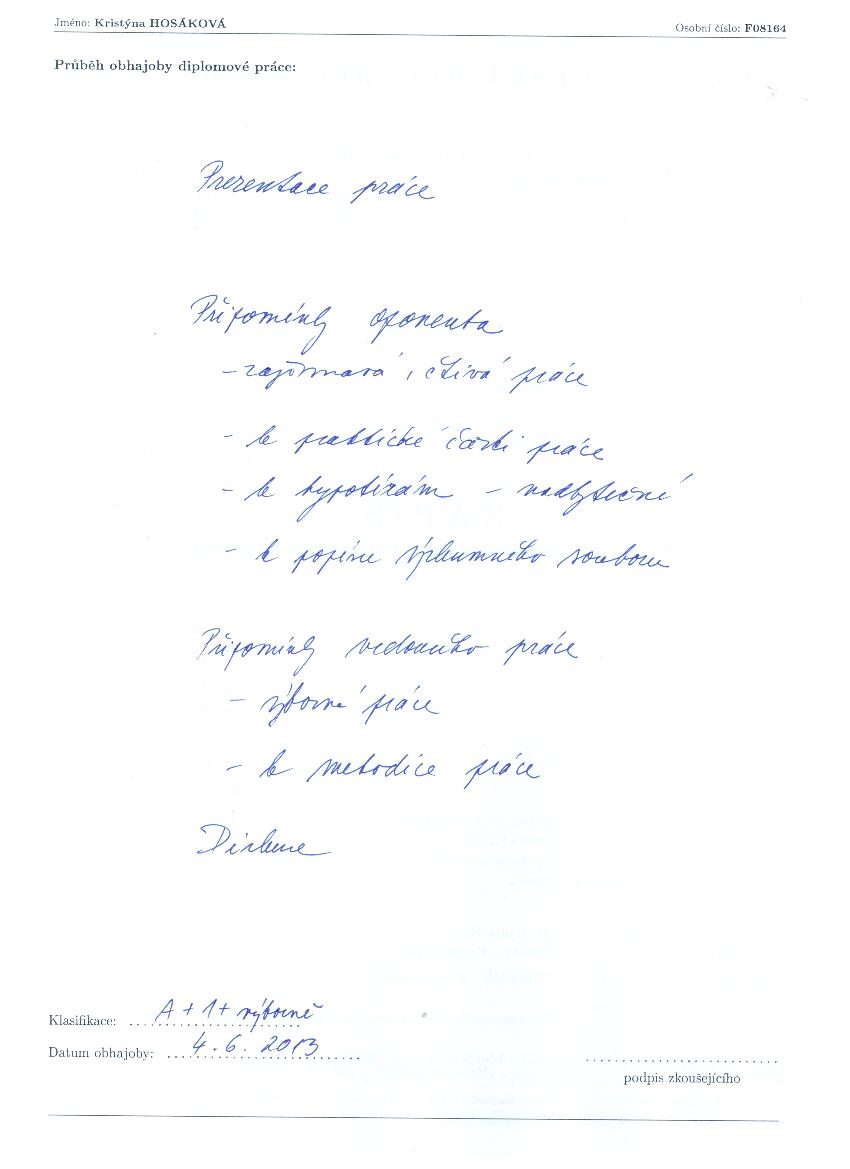 Jméno: Kristýna HOSÁKOVÁ
Osobní číslo: F08164
Průběh obhajoby diplomové práce:
Prezentace práce
Připomínky oponenta
- zajímavá, čtivá práce
- k praktické části práce
- k hypotézám - nadbytečné
- k popisu výzkumného souboru
Připomínky vedoucího práce
- výborná práce
- k metodice práce
Diskuse
Klasifikace: A + 1 + výborně
Datum obhajoby: 4. 6. 2013
podpis zkoušejícího